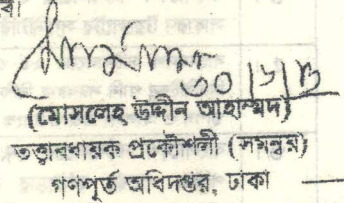 ৩০।১।
(মোসলেহ উদ্দীন আহাম্মদ)
তত্ত্বাবধায়ক প্রকৌশলী (সমন্বয়)
গণপূর্ত অধিদপ্তর, ঢাকা